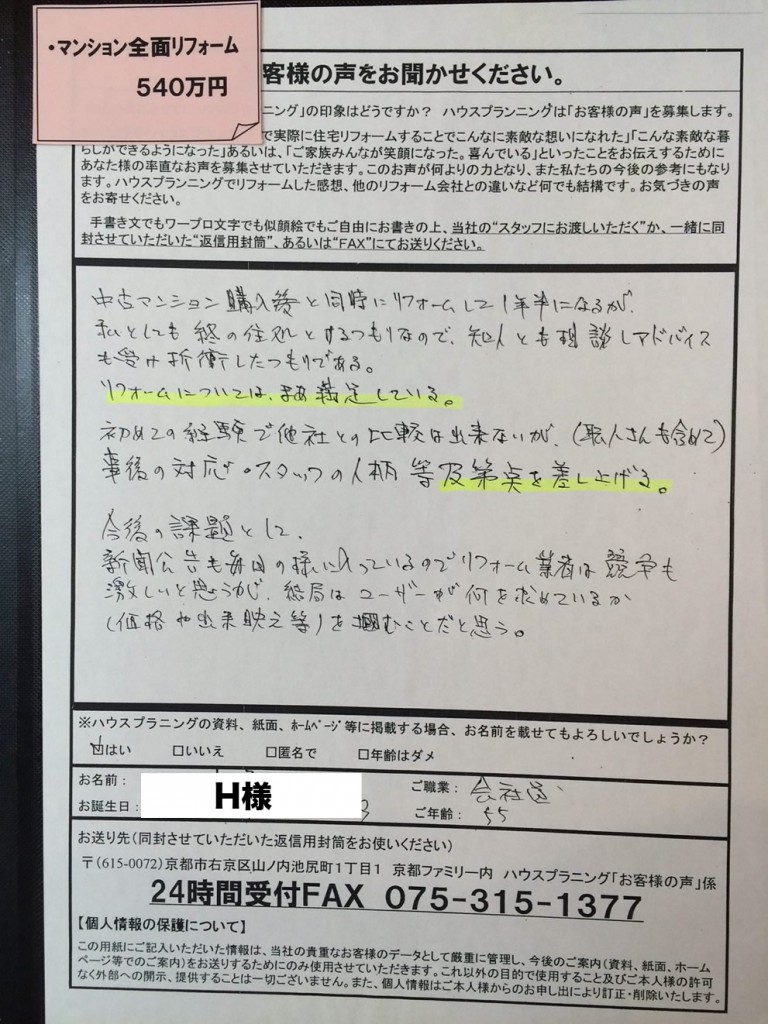 ・マンション全面リフォーム
540万円
客様の声をお聞かせください。
ニング」の印象はどうですか？ ハウスプランニングは「お客様の声」を募集します。
で実際に住宅リフォームすることでこんなに素敵な想いになれた」「こんな素敵な暮
らしができるようになった」あるいは、「ご家族みんなが笑顔になった。喜んでいる」といったことをお伝えするために
あなた様の率直なお声を募集させていただきます。このお声が何よりの力となり、また私たちの今後の参考にもなり
ます。ハウスプランニングでリフォームした感想、他のリフォーム会社との違いなど何でも結構です。お気づきの声
をお寄せください。
手書き文でもワープロ文字でも似顔絵でもご自由にお書きの上、当社の“スタッフにお渡しいただく”か、一緒に同
封させていただいた“返信用封筒”、あるいは“FAX”にてお送りください。
中古マンション購入後と同時にリフォームして1年半になるが、
私としても終の住処とするつもりなので、知人とも相談しアドバイス
も受け折衝したつもりである。
リフォームについては、まあ満足している。
初めての経験で他社との比較は出来ないが、（職人さんも含めて）
事後の対応・スタッフの人柄等及第点を差し上げる。
今後の課題として、
新聞公告も毎日の様に入っているのでリフォーム業者は競争も
激しいと思うが、結局はユーザーが何を求めているか
（価格や出来映え等）を掴むことだと思う。
※ハウスプラニングの資料、紙面、ﾎｰﾑﾍﾟｰｼﾞ等に掲載する場合、お名前を載せてもよろしいでしょうか？
☑はい □いいえ □匿名で □年齢はダメ
お名前： H様 ご職業： 会社員
お誕生日： 3 ご年齢： 55
お送り先（同封させていただいた返信用封筒をお使いください）
〒(615-0072)京都市右京区山ノ内池尻町1丁目1 京都ファミリー内 ハウスプラニング「お客様の声」係
24時間受付FAX 075-315-1377
【個人情報の保護について】
この用紙にご記入いただいた情報は、当社の貴重なお客様のデータとして厳重に管理し、今後のご案内（資料、紙面、ホーム
ページ等でのご案内）をお送りするためにのみ使用させていただきます。これ以外の目的で使用すること及びご本人様の許可
なく外部への開示、提供することは一切ございません。また、個人情報はご本人様からのお申し出により訂正・削除いたします。